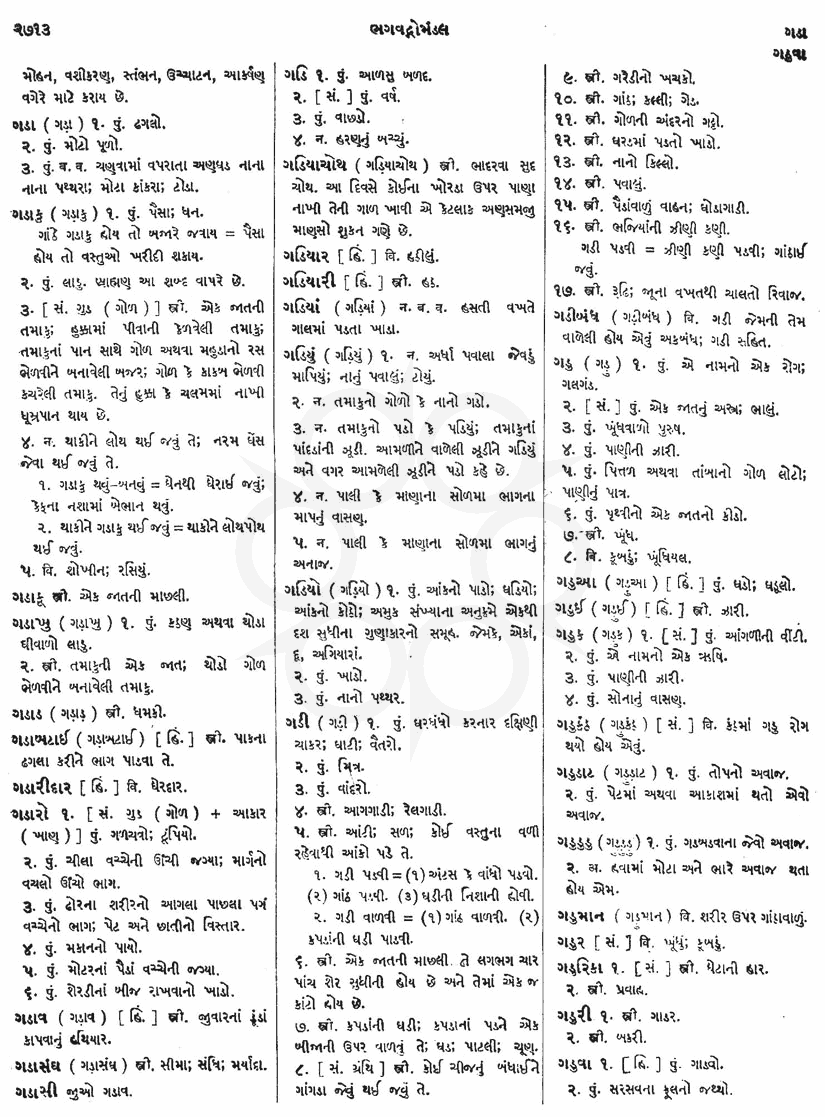 ૨૭૧૩
ભગવદ્ગોમંડલ
ગડા
ગડુવા
મોહન, વશીકરણ, સ્તંભન, ઉચ્ચાટન, આકર્ષણ
વગેરે માટે કરાય છે.
ગડા ( ગડા઼ ) ૧. પું. ઢગલો.
૨. પું. મોટો પૂળો.
૩. પું. બ. વ. ચણવામાં વપરાતા અણઘડ નાના
નાના પથ્થરા; મોટા કાંકરા; ટોડા.
ગડાકુ ( ગડા઼કુ ) ૧. પું. પૈસા; ધન.
ગાંઠે ગડાકુ હોય તો બજરે જત્રાય = પૈસા
હોય તો વસ્તુઓ ખરીદી શકાય.
૨. પું. લાડુ. બ્રાહ્મણ આ શબ્દ વાપરે છે.
૩. [ સં. ગુડ ( ગોળ ) ] સ્ત્રી. એક જાતની
તમાકુ; હુક્કામાં પીવાની કેળવેલી તમાકુ;
તમાકુનાં પાન સાથે ગોળ અથવા મહુડાનો રસ
ભેળવીને બનાવેલી બજર; ગોળ કે કાકબ ભેળવી
કચરેલી તમાકુ. તેનું હુક્કા કે ચલમમાં નાખી
ધૂમ્રપાન થાય છે.
૪. ન. થાકીને લોથ થઈ જવું તે; નરમ ઘેંસ
જેવા થઈ જવું તે.
૧. ગડાકુ થવું-બનવું = ઘેનથી ઘેરાઈ જવું;
કેફના નશામાં બેભાન થવું.
૨. થાકીને ગડાકુ થઈ જવું = થાકીને લોથપોથ
થઈ જવું.
૫. વિ. શોખીન; રસિયું.
ગડાકૂ સ્ત્રી. એક જાતની માછલી.
ગડાખુ ( ગડા઼ખુ ) ૧. પું. કઠણ અથવા થોડા
ઘીવાળો લાડુ.
૨. સ્ત્રી. તમાકુની એક જાત; થોડો ગોળ
ભેળવીને બનાવેલી તમાકુ.
ગડાડ ( ગડા઼ડ઼ ) સ્ત્રી. ધમકી.
ગડાબટાઈ ( ગડા઼બટાઈ ) [ હિં. ] સ્ત્રી. પાકના
ઢગલા કરીને ભાગ પાડવા તે.
ગડારીદાર [ હિં. ] વિ. ઘેરદાર.
ગડારો ૧. [ સં. ગુડ ( ગોળ ) + આકાર
( ખાણ ) ] પું. ગળચવો; ટૂંપિયો.
૨. પું. ચીલા વચ્ચેની ઊંચી જગ્યા; માર્ગનો
વચલો ઊંચો ભાગ.
૩. પું. ઢોરના શરીરનો આગલા પાછલા પગ
વચ્ચેનો ભાગ; પેટ અને છાતીનો વિસ્તાર.
૪. પું. મકાનનો પાયો.
૫. પું. મોટરનાં પૈડાં વચ્ચેની જગ્યા.
૬. પું. શેરડીનાં બીજ રાખવાનો ખાડો.
ગડાવ ( ગડા઼વ ) [ હિં. ] સ્ત્રી. જુવારનાં ઠૂંઠાં
કાપવાનું હથિયાર.
ગડાસંઘ ( ગડા઼સંઘ ) સ્ત્રી. સીમા; સંધિ; મર્યાદા.
ગડાસી જુઓ ગડાવ.
ગડિ ૧. પું. આળસુ બળદ.
૨. [ સં. ] પું. વર્ષ.
૩. પું. વાછડો.
૪. ન. હરણનું બચ્ચું.
ગડિયાચોથ ( ગડિ઼યાચોથ ) સ્ત્રી. ભાદરવા સુદ
ચોથ. આ દિવસે કોઈના ખોરડા ઉપર પાણા
નાખી તેની ગાળ ખાવી એ કેટલાક અણસમજુ
માણસો શુકન ગણે છે.
ગડિયાર [ હિં. ] વિ. હઠીલું.
ગડિયારી [ હિં. ] સ્ત્રી. હઠ.
ગડિયાં ( ગડિ઼યાં ) ન. બ. વ. હસતી વખતે
ગાલમાં પડતા ખાડા.
ગડિયું ( ગડિ઼યું ) ૧. ન. અર્ધા પવાલા જેવડું
માપિયું; નાનું પવાલું; ટોયું.
૨. ન. તમાકુનો ગોળો કે નાનો ગડો.
૩. ન. તમાકુનો પડો કે પડિયું; તમાકુનાં
પાંદડાંની ઝૂડી. આમળીને વાળેલી ઝૂડીને ગડિયું
અને વગર આમળેલી ઝૂડીને પડો કહે છે.
૪. ન. પાલી કે માણાના સોળમા ભાગના
માપનું વાસણ.
૫. ન. પાલી કે માણાના સોળમા ભાગનું
અનાજ.
ગડિયો ( ગડિ઼યો ) ૧. પું. આંકનો પાડો; ઘડિયો;
આંકનો કોઠો; અમુક સંખ્યાના અનુક્રમે એકથી
દશ સુધીના ગુણાકારનો સમૂહ. જેમકે, એકાં,
દૂ, અગિયારાં.
૨. પું. ખાડો.
૩. પું. નાનો પથ્થર.
ગડી ( ગડી઼ ) ૧. પું. ઘરધંધો કરનાર દક્ષિણી
ચાકર; ઘાટી; વૈતરો.
૨. પું. મિત્ર.
૩. પું. વાંદરો.
૪. સ્ત્રી. આગગાડી; રેલગાડી.
૫. સ્ત્રી. આંટી; સળ; કોઈ વસ્તુના વળી
રહેવાથી આંકો પડે તે.
૧. ગડી પડવી = (૧) અંટસ કે વાંધો પડવો.
(૨) ગાંઠ પડવી. (૩) ઘડીની નિશાની હોવી.
૨. ગડી વાળવી = (૧) ગાંઠ વાળવી. (૨)
કપડાંની ઘડી પાડવી.
૬. સ્ત્રી. એક જાતની માછલી. તે લગભગ ચાર
પાંચ શેર સુધીની હોય છે અને તેમાં એક જ
કાંટો હોય છે.
૭. સ્ત્રી. કપડાંની ઘડી; કપડાનાં પડને એક
બીજાની ઉપર વાળવું તે; ઘડ; પાટલી; ચૂણ.
૮. [ સં. ગ્રંથિ ] સ્ત્રી. કોઈ ચીજનું બંધાઈને
ગાંગડા જેવું થઈ જવું તે.
૯. સ્ત્રી. ગરેડીનો ખચકો.
૧૦. સ્ત્રી. ગાંઠ; કલ્લી; ગેડ.
૧૧. સ્ત્રી. ગોળની અંદરનો ગઠ્ઠો.
૧૨. સ્ત્રી. ઘરડમાં પડતો ખાડો.
૧૩. સ્ત્રી. નાનો કિલ્લો.
૧૪. સ્ત્રી. પવાલું.
૧૫. સ્ત્રી. પૈડાંવાળું વાહન; ઘોડાગાડી.
૧૬. સ્ત્રી. ભજિયાંની ઝીણી કણી.
ગડી પડવી = ઝીણી કણી પડવી; ગાંઠાઈ
જવું.
૧૭. સ્ત્રી. રૂઢિ; જૂના વખતથી ચાલતો રિવાજ.
ગડીબંધ ( ગડી઼બંધ ) વિ. ગડી જેમની તેમ
વાળેલી હોય એવું અકબંધ; ગડી સહિત.
ગડુ ( ગડુ઼ ) ૧. પું. એ નામનો એક રોગ;
ગલગંડ.
૨. [ સં. ] પું. એક જાતનું અસ્ત્ર; ભાલું.
૩. પું. ખૂંધવાળો પુરુષ.
૪. પું. પાણીની ઝારી.
૫. પું. પિત્તળ અથવા તાંબાનો ગોળ લોટો;
પાણીનું પાત્ર.
૬. પું. પૃથ્વીનો એક જાતનો કીડો.
૭. સ્ત્રી. ખૂંધ.
૮. વિ. કૂબડું; ખૂંધિયલ.
ગડુઆ ( ગડુ઼આ ) [ હિં. ] પું. ઘડો; ઘડુલો.
ગડુઈ ( ગડુ઼ઈ ) [ હિં. ] સ્ત્રી. ઝારી.
ગડુક ( ગડુ઼ક ) ૧. [ સં. ] પું. આંગળીની વીંટી.
૨. પું. એ નામનો એક ઋષિ.
૩. પું. પાણીની ઝારી.
૪. પું. સોનાનું વાસણ.
ગડુકંઠ ( ગડુ઼કંઠ ) [ સં. ] વિ. કંઠમાં ગડુ રોગ
થયો હોય એવું.
ગડુડાટ ( ગડુ઼ડા઼ટ ) ૧. પું. તોપનો અવાજ.
૨. પું. પેટમાં અથવા આકાશમાં થતો એવો
અવાજ.
ગડુડુડુ ( ગડુ઼ડુ઼ડુ઼ ) ૧. પું. ગડબડવાના જેવો અવાજ.
૨. અ. હવામાં મોટા અને ભારે અવાજ થતા
હોય એમ.
ગડુમાન ( ગડુ઼માન ) વિ. શરીર ઉપર ગાંઠાવાળું.
ગડુર [ સં. ] વિ. ખૂંધું; કૂબડું.
ગડુરિકા ૧. [ સં. ] સ્ત્રી. ઘેટાની હાર.
૨. સ્ત્રી. પ્રવાહ.
ગડુરી ૧. સ્ત્રી. ગાડર.
૨. સ્ત્રી. બકરી.
ગડુવા ૧. [ હિં. ] પું. ગાડવો.
૨. પું. સરસવના ફૂલનો જથ્થો.